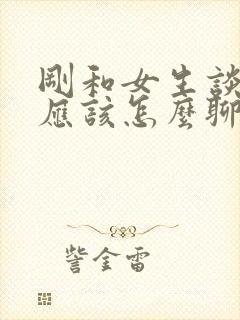 剛和女生談
應該怎麼聊
訾金雷